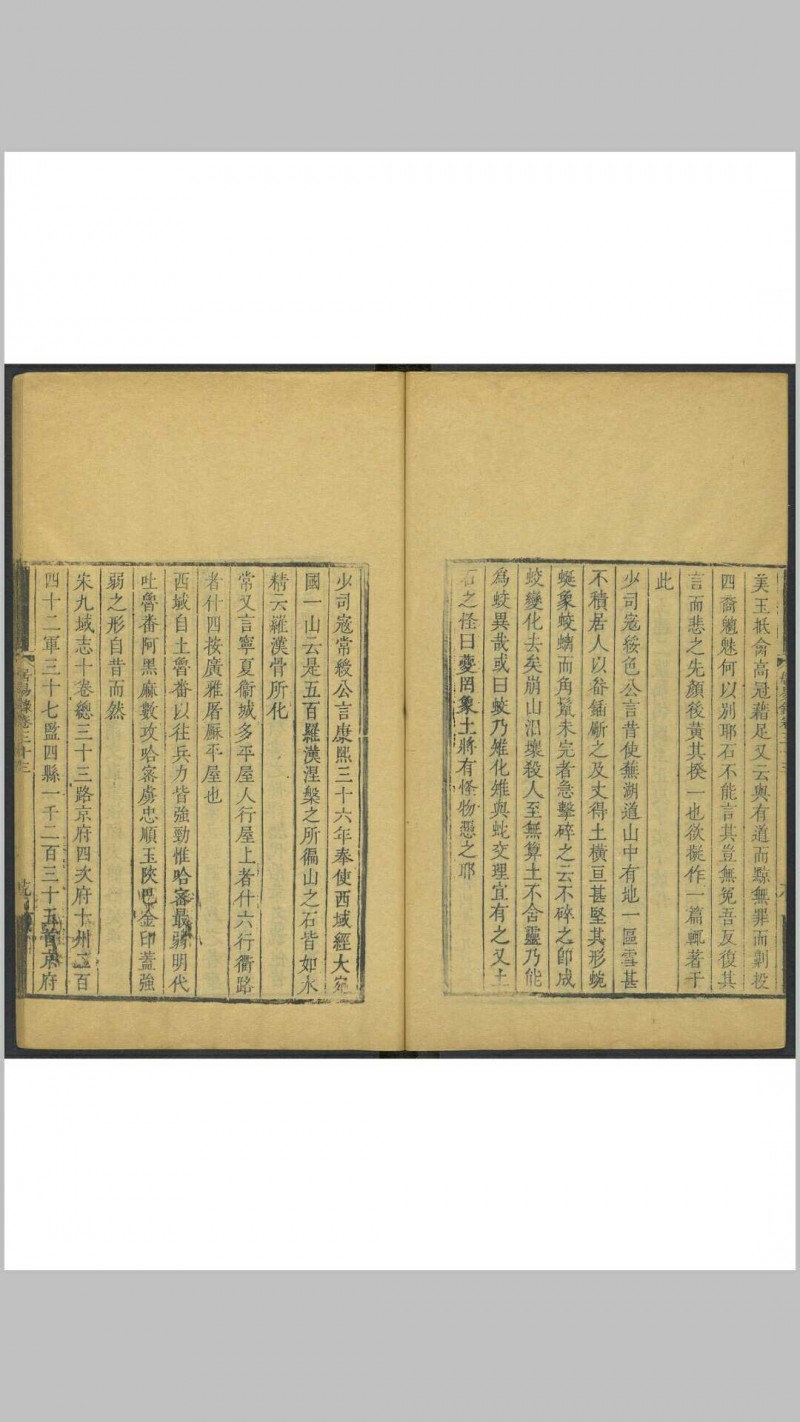 美玉祇侖高冠藉足又云與有道而黥無罪而剕投
四裔魑魅何以別耶石不能言其豈無冤吾反復其
言而悲之先顏後黃其揆一也欲擬作一篇輒著于
此
少司寇綏色公言昔使蕪湖道山中有地一區雪甚
不積居人以畚鍤斸之及丈得土橫亘甚堅其形蜿
蜒象蛟螭而角鬣未完者急擊碎之云不碎之即成
蛟變化去矣崩山汨壤殺人至無算土不含靈乃能
為蛟異哉或曰蛟乃雉化雉與蛇交理宜有之又土
石之怪曰夔罔象土將有怪物憑之耶
少司寇常綬公言康熙三十六年奉使西域經大宛
國一山云是五百羅漢涅槃之所徧山之石皆如水
精云羅漢骨所化
常又言寧夏衞城多平屋人行屋上者什六行衢路
者什四按廣雅屠廜平屋也
西域自土魯番以往兵力皆強勁惟哈密最弱明代
吐魯番阿黑麻數攻哈密虜忠順王陝巴金印蓋強
弱之形自昔而然
宋九域志十卷總三十三路京府四次府十州二百
四十二軍三十七監四縣一千二百三十五管京府
居易錄卷三十三